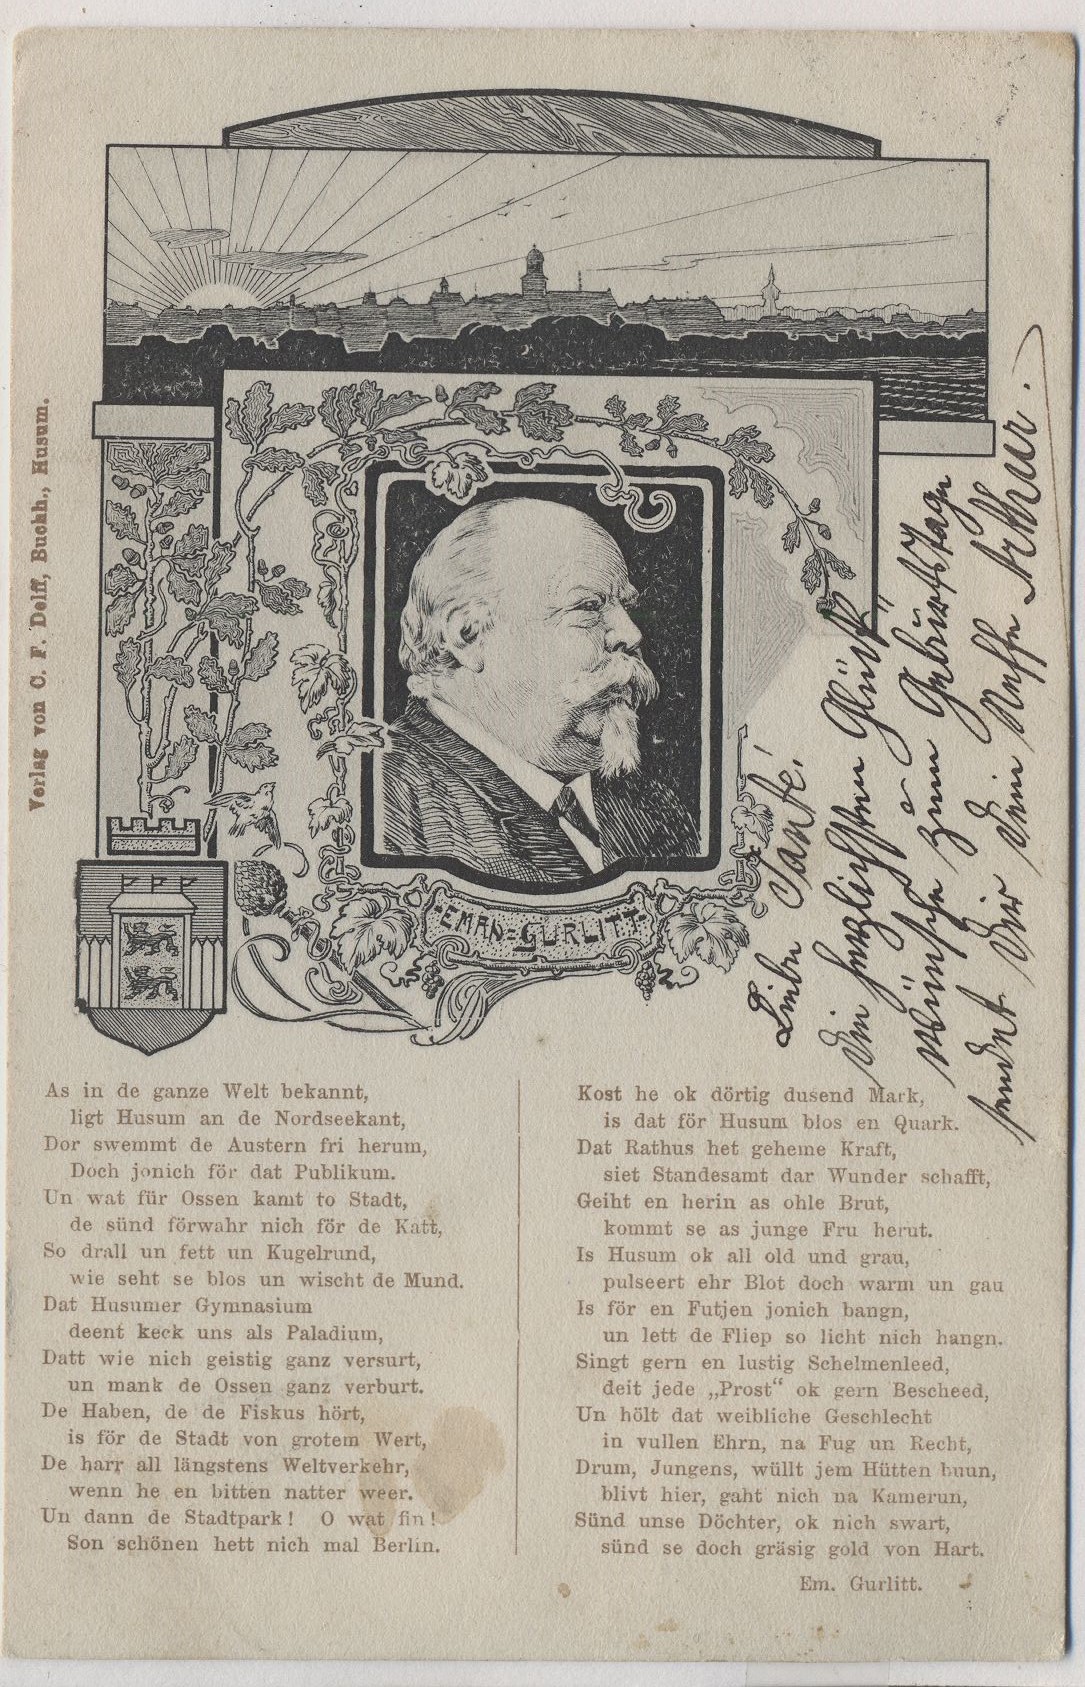 Verlag von C. F. Delff, Buchh., Husum.
EMAN-GURLITT-
Liebe Tante!
Die herzlichsten Glück-
wünsche zum Geburtstage
sendet Dir Dein Neffe Arthur.
As in de ganze Welt bekannt,
ligt Husum an de Nordseekant,
Dor swemmt de Austern fri herum,
Doch jonich för dat Publikum.
Un wat für Ossen kamt to Stadt,
de sünd förwahr nich för de Katt,
So drall un fett un Kugelrund,
wie seht se blos un wischt de Mund.
Dat Husumer Gymnasium
deent keck uns als Paladium,
Datt wie nich geistig ganz versurt,
un mank de Ossen ganz verburt.
De Haben, de de Fiskus hört,
is för de Stadt von grotem Wert,
De harr all längstens Weltverkehr,
wenn he en bitten natter weer.
Un dann de Stadtpark! O wat fin!
Son schönen hett nich mal Berlin.
Kost he ok dörtig dusend Mark,
is dat för Husum blos en Quark.
Dat Rathus het geheme Kraft,
siet Standesamt dar Wunder schafft,
Geiht en herin as ohle Brut,
kommt se as junge Fru herut.
Is Husum ok all old und grau,
pulseert ehr Blot doch warm un gau
Is för en Futjen jonich bangn,
un lett de Fliep so licht nich hangn.
Singt gern en lustig Schelmenleed,
deit jede „Prost“ ok gern Bescheed,
Un hölt dat weibliche Geschlecht
in vullen Ehrn, na Fug un Recht,
Drum, Jungens, wüllt jem Hütten buun,
blivt hier, gaht nich na Kamerun,
Sünd unse Döchter, ok nich swart,
sünd se doch gräsig gold von Hart.
Em. Gurlitt.